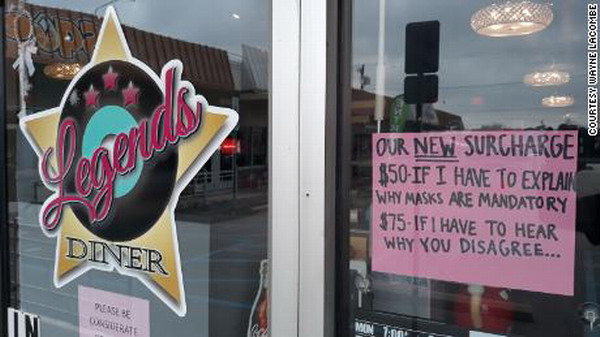 Legends
DINER
PLEASE BE
CONSIDERATE
IN
OUR NEW SURCHARGE
$50-IF I HAVE TO EXPLAIN
WHY MASKS ARE MANDATORY
$75-IF I HAVE TO HEAR
WHY YOU DISAGREE...
MON
COURTESY WAYNE LACOMBE